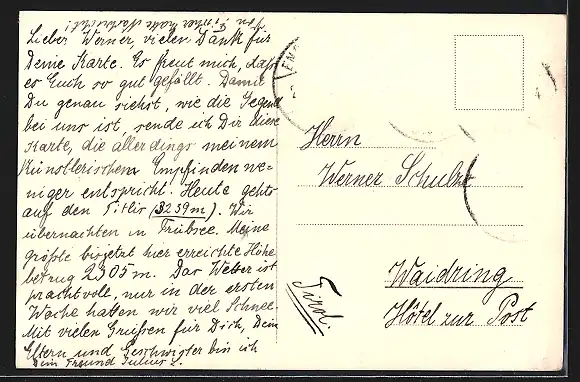 Lieber Werner, vielen Dank für
Deine Karte. Es freut mich, daß
es Euch so gut gefällt. Damit
Du genau siehst, wie die Gegend
bei uns ist, sende ich Dir diese
Karte, die allerdings meinem
Künstlerischem Empfinden we-
niger entspricht. Heute gehts
auf den Titlis (3239m). Wir
übernachten in Trübsee. Meine
größte bisjetzt hier erreichte Höhe
betrug 2305 m. Das Wetter ist
prachtvoll, nur in der ersten
Woche hatten wir viel Schnee.
Mit vielen Grüßen für Dich, Dein
Eltern und Geschwister bin ich
Dein Freund Julius L.
Herrn
Werner Schulze
Tirol.
Waidring
Hôtel zur Post